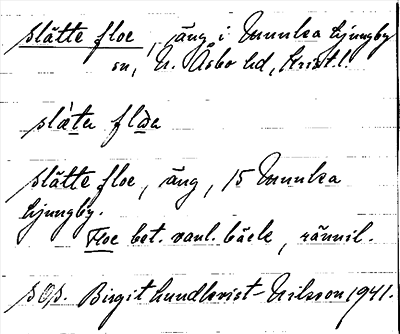 slätte floe, äng i Munka Ljungby
sn, N. Åsbo hd, Krist. l.
slæ̀ta flòa
slätte floe, äng, 15 Munka
Ljungby.
Floe bet. vanl. bäck, rännil.
Birgit Lundkvist-Nilsson 1941.